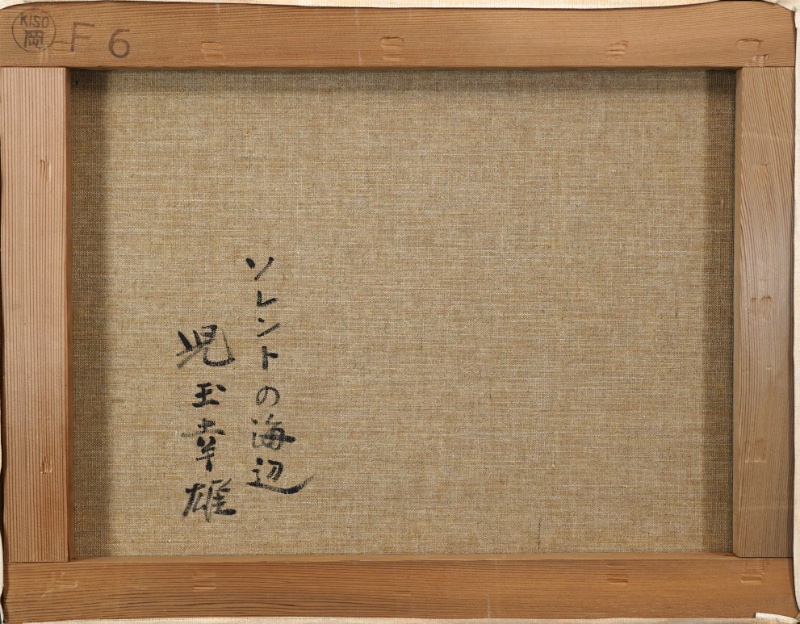 KISO
岡
F6
ソレントの海辺
児玉幸雄